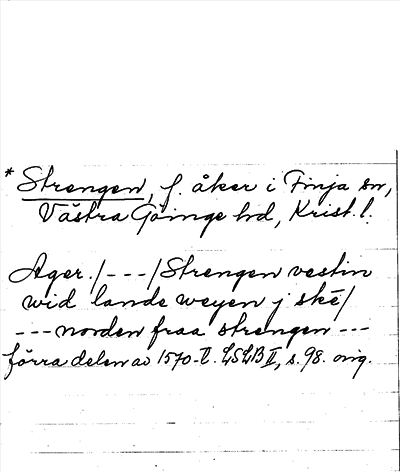 * Strengen, f. åker i Finja sn,
Västra Göinge hd, Krist. l.
Ager./---/Strengen vestin
wid lande weyen j skē/
---norden fraa strengen---
förra delen av 1570-t. LSLB II, s. 98. orig.